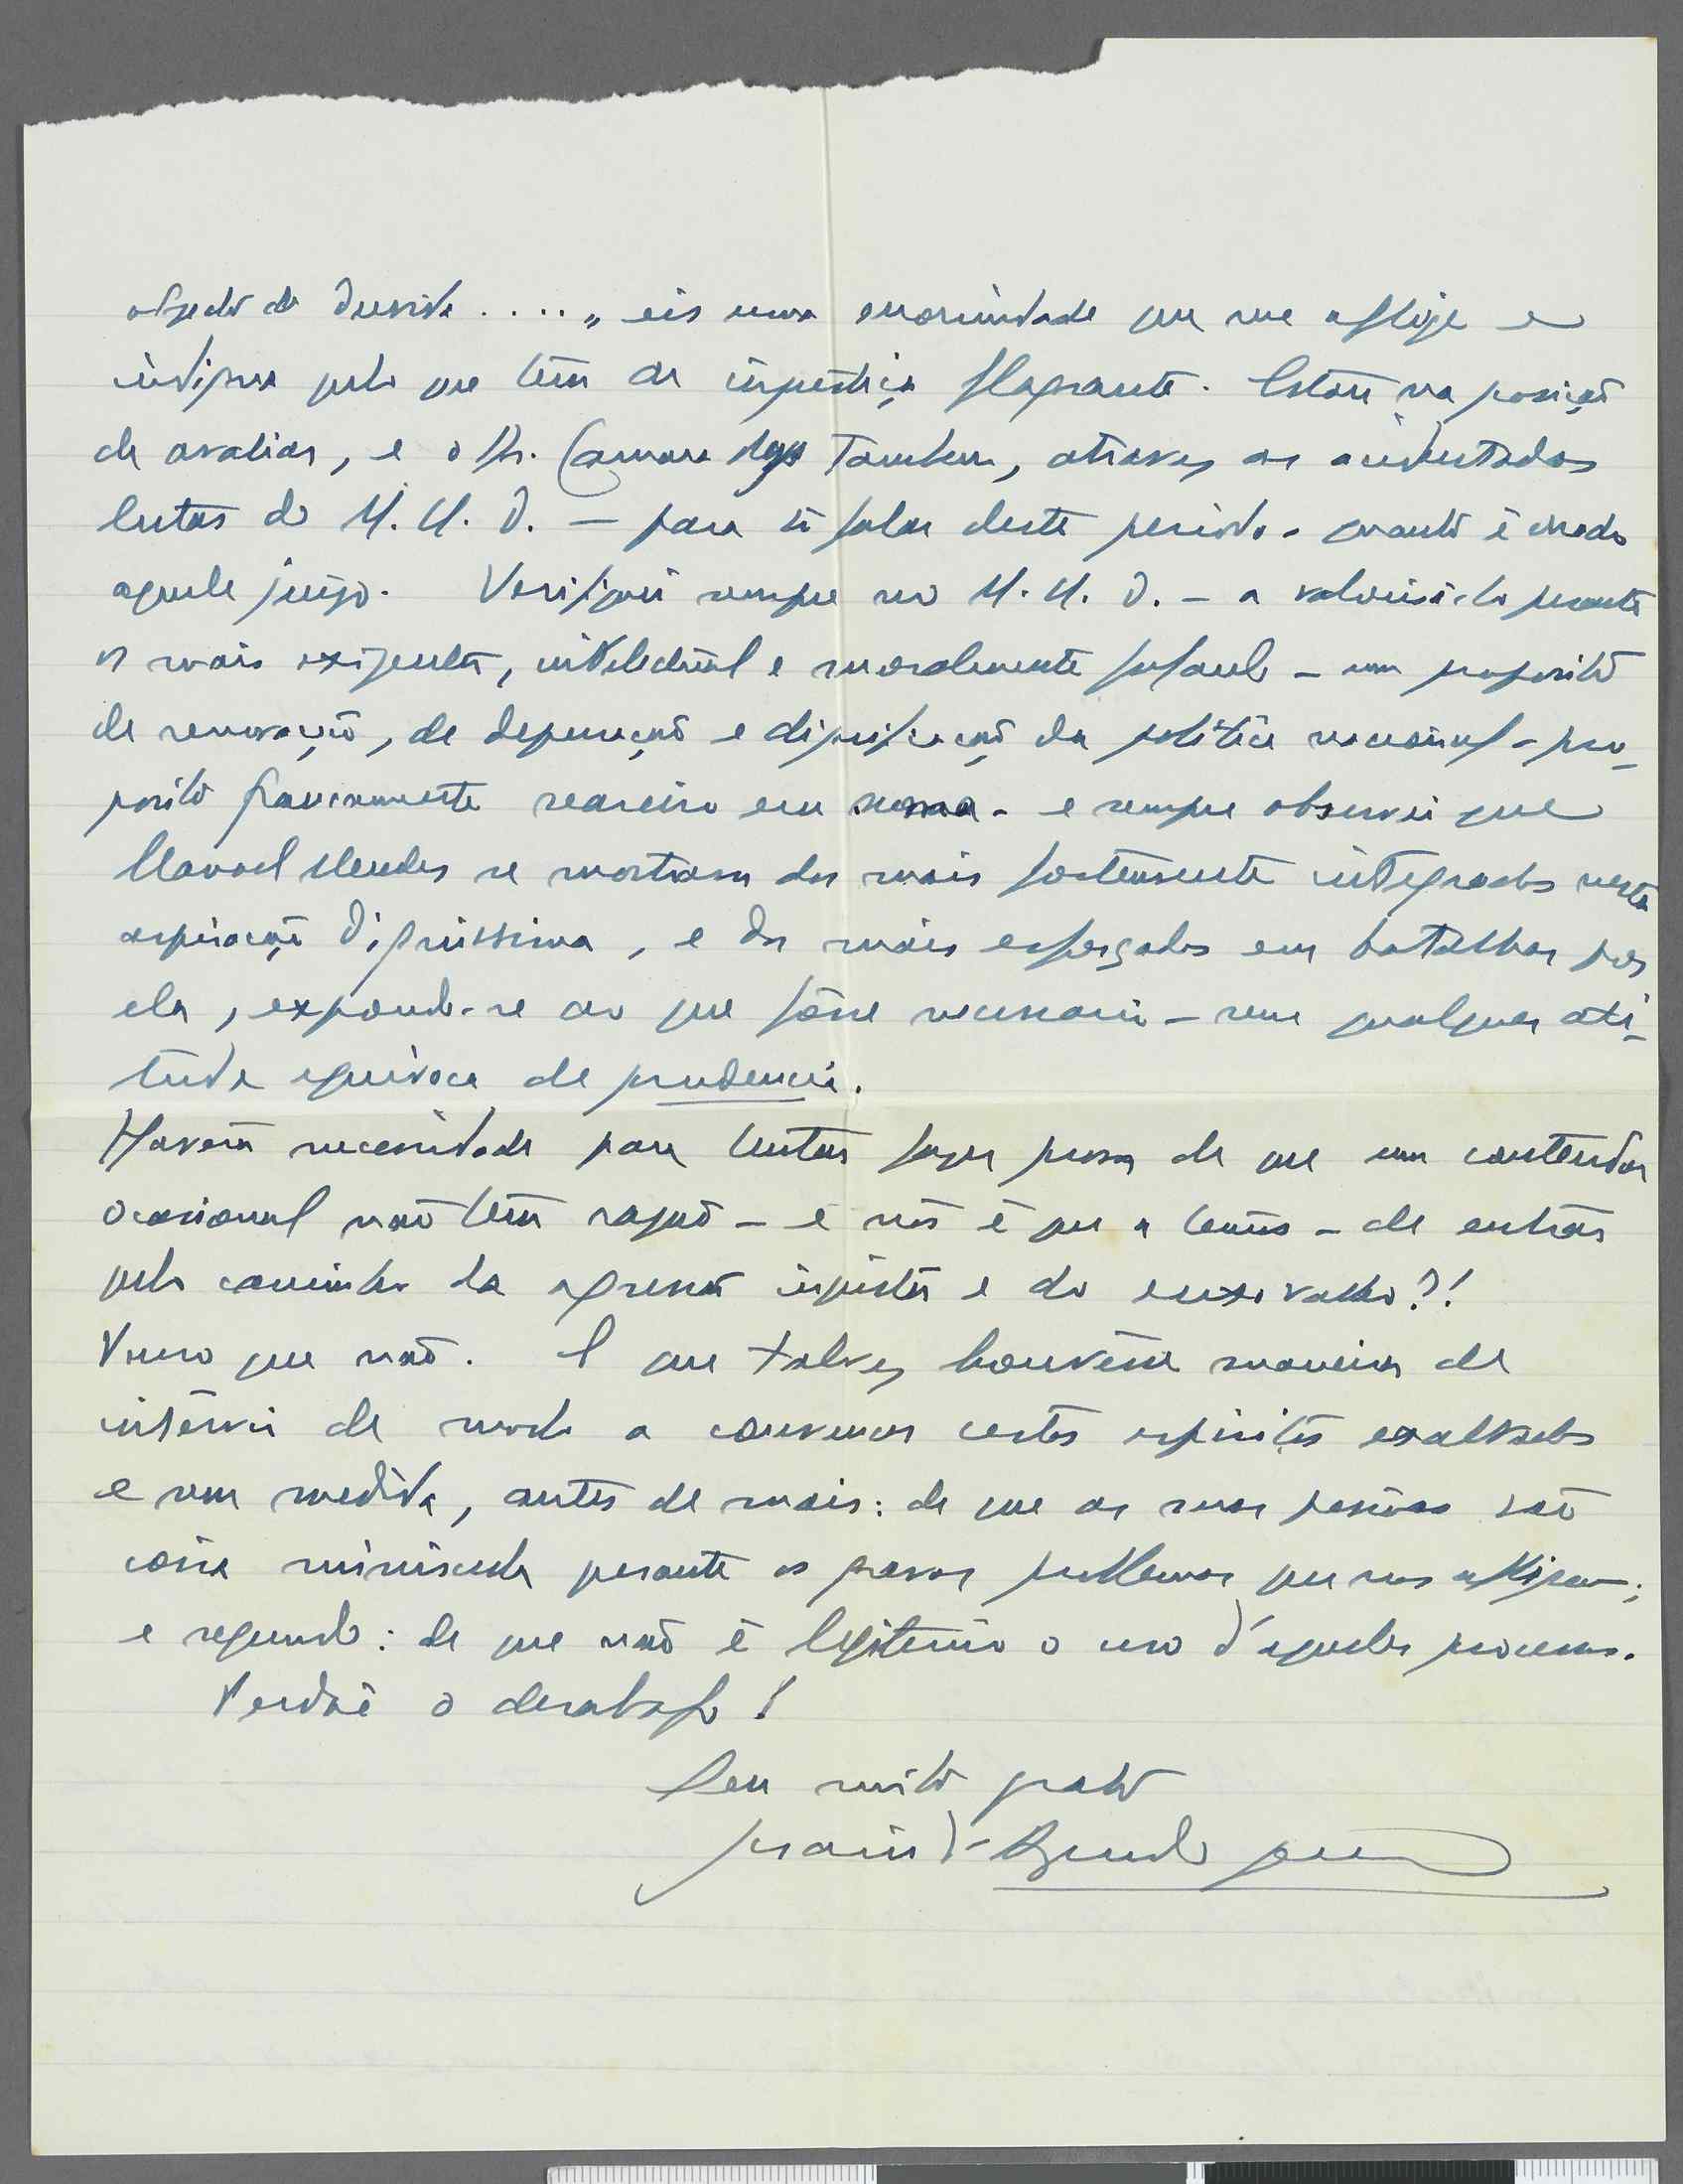 objecto de duvida ....„ eis uma enormidade que me aflige e
indigna pelo que tem de injustiça flagrante. Estou na posição
de avaliar, e o Dr. Camara Reys tambem, atravez as acidentadas
lutas do M. U. D. — para só falar deste periodo - quanto é errado
aquele juizo. Verifiquei sempre no M. U. D. - a valorisá-lo perante
os mais exigentes, intelectual e moralmente falando - um proposito
de renovação, de depuração e dignificação da politica nacional - pro-
posito francamente seareiro em suma - e sempre observei que
Manoel Mendes se mostrava dos mais fortemente integrados nesta
aspiração dignissima, e dos mais esforçados em batalhar por
ela, expondo-se ao que fôsse necessario - sem qualquer ati-
tude equivoca de prudencia.
Haverá necessidade para tentar fazer prova de que um contendor
ocasional não tem razão - e nós é que a temos - de entrar
pelo caminho da agressão injusta e do enxovalho?!
Penso que não. E que talvez houvésse maneira de
intervir de modo a convencer certos espiritos exaltados
e sem medida, antes de mais: de que as suas pessoas são
coisa minuscula perante os graves problemas que nos afligem;
e segundo: de que não é legitimo o uso d'aqueles processos.
Perdoe o desabafo!
Seu muito grato